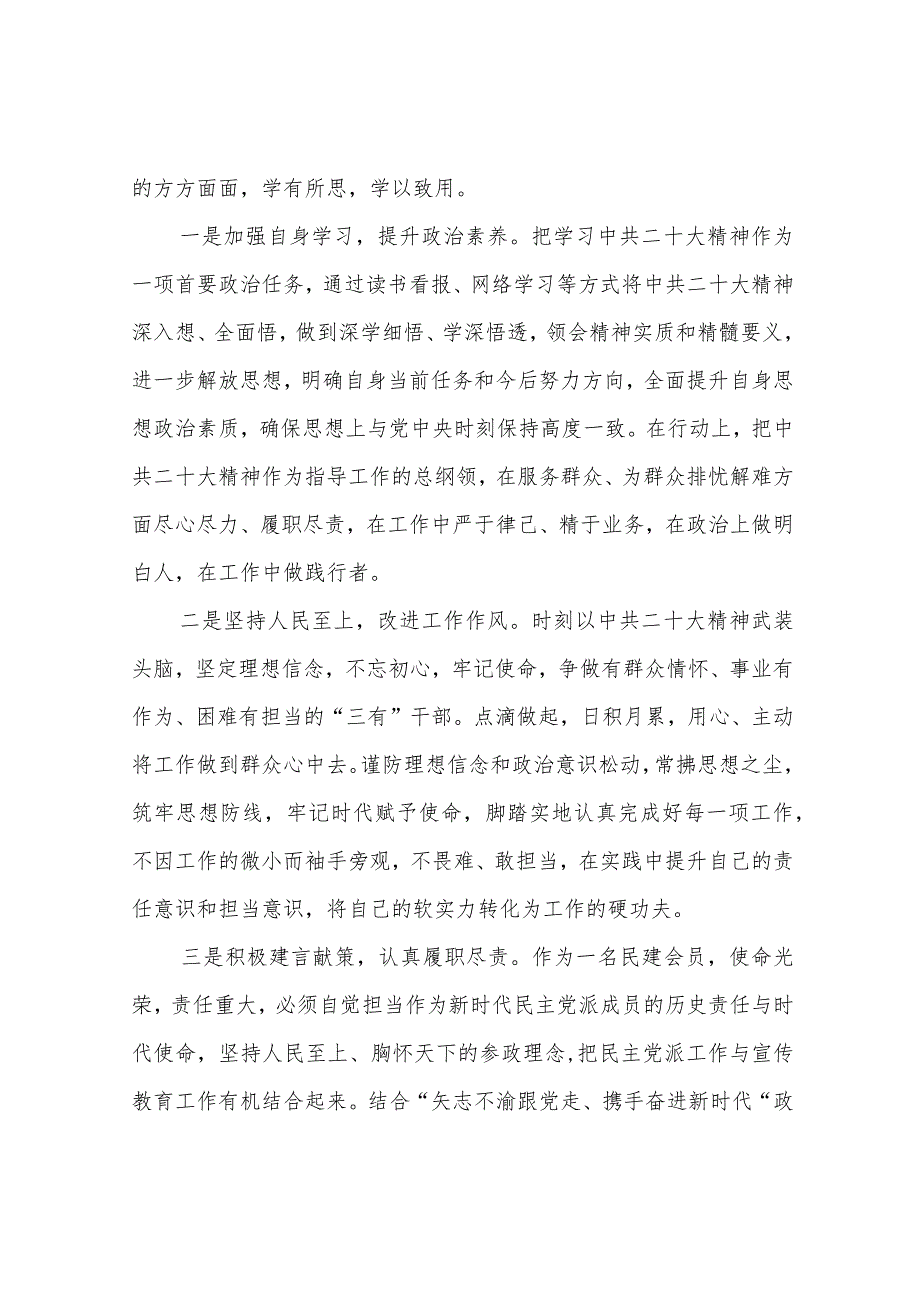 的方方面面，学有所思，学以致用。
一是加强自身学习，提升政治素养。把学习中共二十大精神作为
一项首要政治任务，通过读书看报、网络学习等方式将中共二十大精神
深入想、全面悟，做到深学细悟、学深悟透，领会精神实质和精髓要义，
进一步解放思想，明确自身当前任务和今后努力方向，全面提升自身思
想政治素质，确保思想上与党中央时刻保持高度一致。在行动上，把中
共二十大精神作为指导工作的总纲领，在服务群众、为群众排忧解难方
面尽心尽力、履职尽责，在工作中严于律己、精于业务，在政治上做明
白人，在工作中做践行者。
二是坚持人民至上，改进工作作风。时刻以中共二十大精神武装
头脑，坚定理想信念，不忘初心，牢记使命，争做有群众情怀、事业有
作为、困难有担当的“三有”干部。点滴做起，日积月累，用心、主动
将工作做到群众心中去。谨防理想信念和政治意识松动，常拂思想之尘，
筑牢思想防线，牢记时代赋予使命，脚踏实地认真完成好每一项工作，
不因工作的微小而袖手旁观，不畏难、敢担当，在实践中提升自己的责
任意识和担当意识，将自己的软实力转化为工作的硬功夫。
三是积极建言献策，认真履职尽责。作为一名民建会员，使命光
荣，责任重大，必须自觉担当作为新时代民主党派成员的历史责任与时
代使命，坚持人民至上、胸怀天下的参政理念,把民主党派工作与宣传
教育工作有机结合起来。结合“矢志不渝跟党走、携手奋进新时代“政